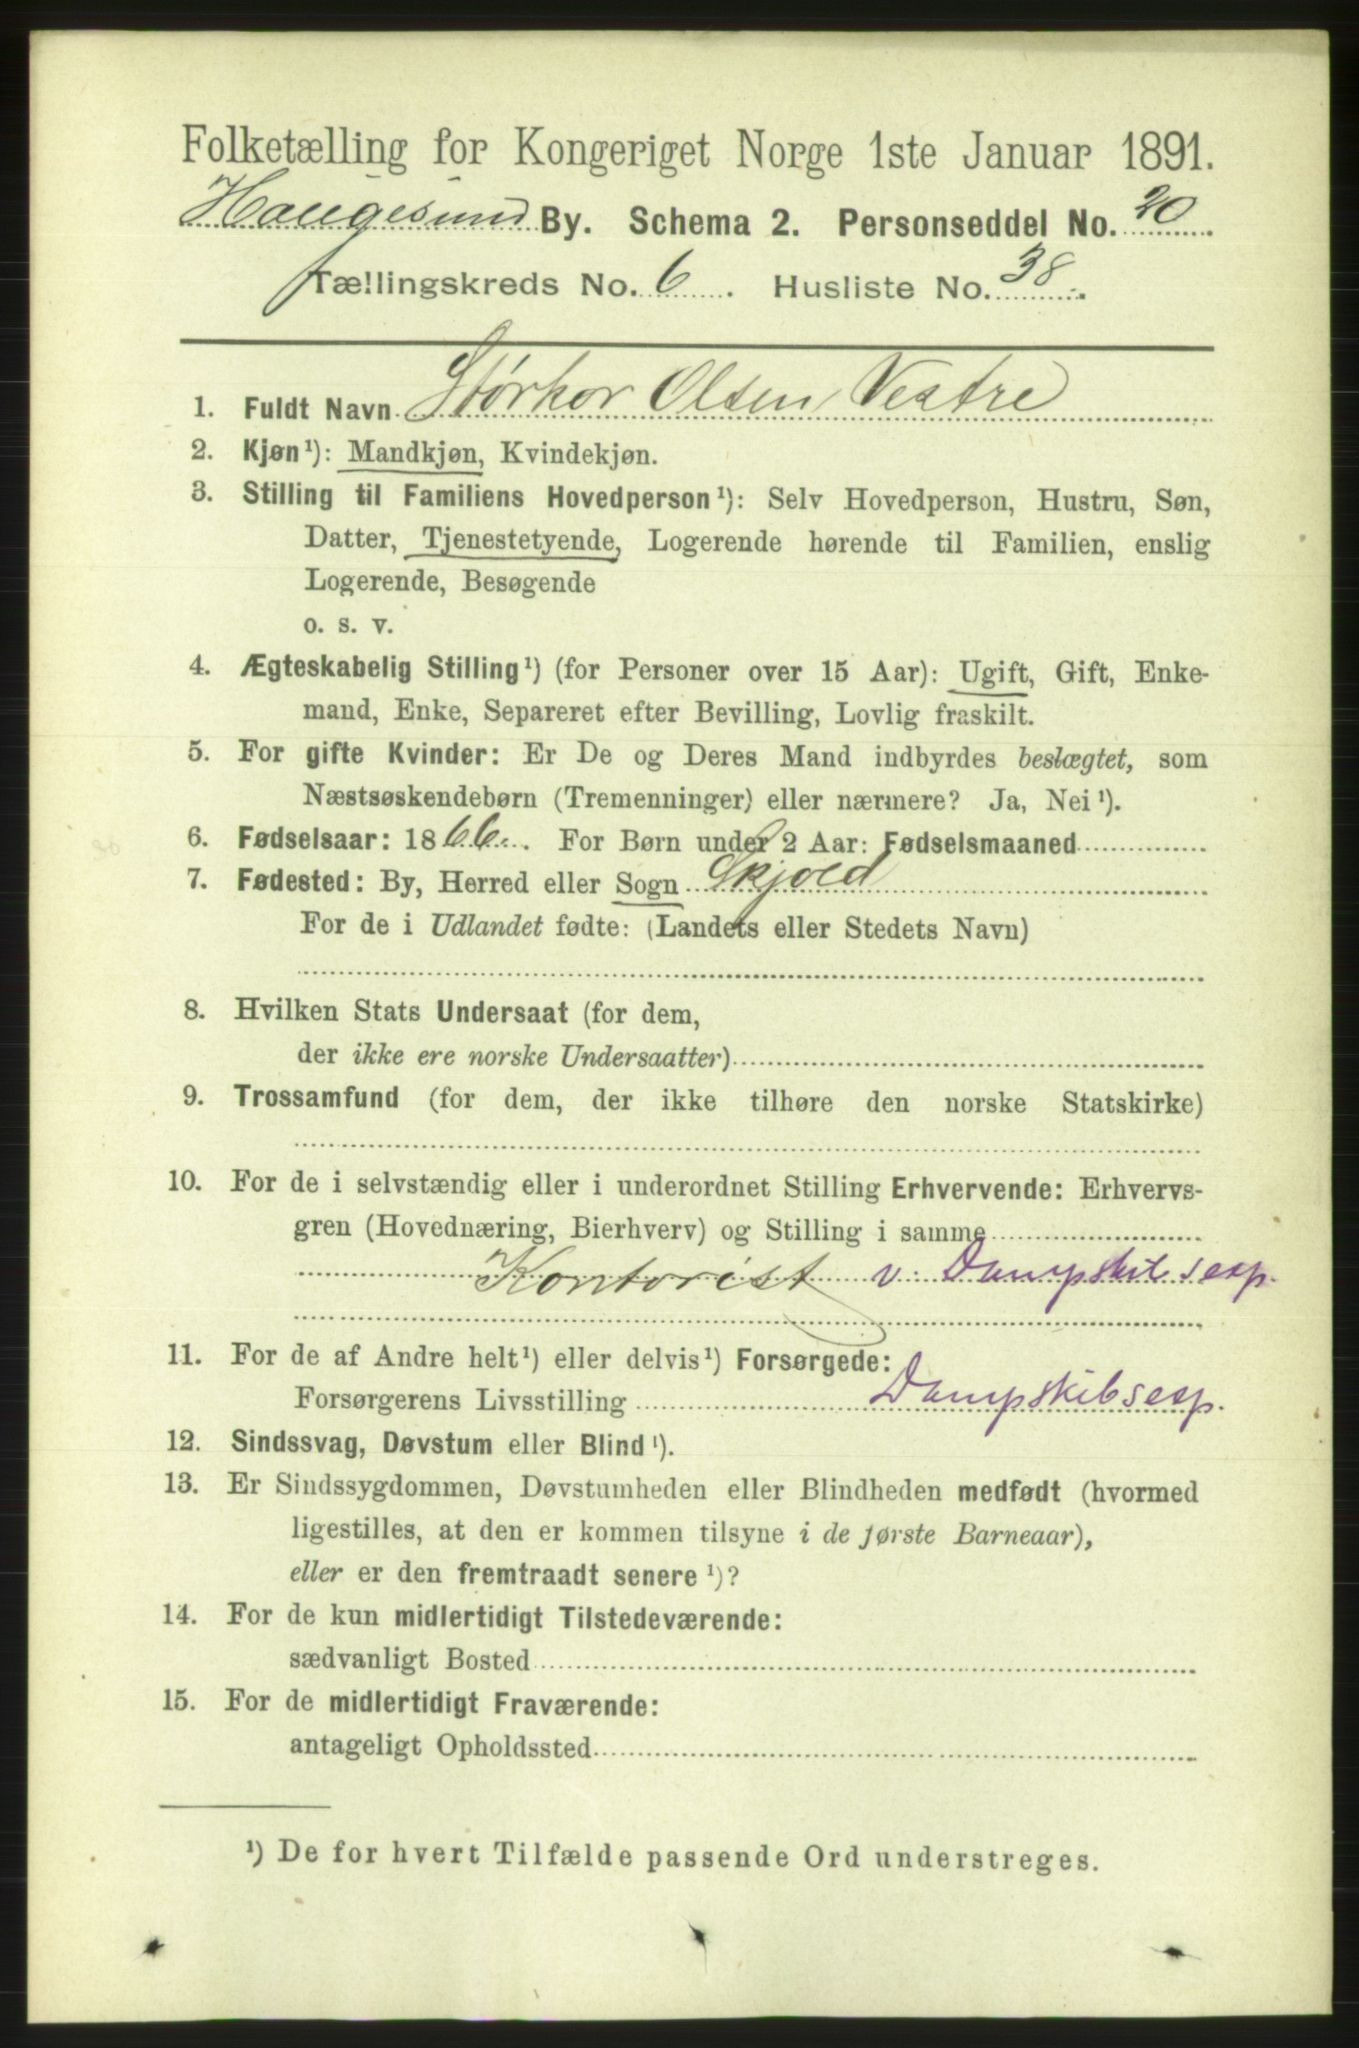 Folketælling for Kongeriget Norge 1ste Januar 1891.
Haugesund By. Schema 2. Personseddel No. 20
Tællingskreds No. 6. Husliste No. 38.
1. Fuldt Navn Størkor Olsen Vestre
2. Kjøn¹): Mandkjøn, Kvindekjøn.
3. Stilling til Familiens Hovedperson¹): Selv Hovedperson, Hustru, Søn,
Datter, Tjenestetyende, Logerende hørende til Familien, enslig
Logerende, Besøgende
o. s. v.
4. Ægteskabelig Stilling¹) (for Personer over 15 Aar): Ugift, Gift, Enke-
mand, Enke, Separeret efter Bevilling, Lovlig fraskilt.
5. For gifte Kvinder: Er De og Deres Mand indbyrdes beslægtet, som
Næstsøskendebørn (Tremenninger) eller nærmere? Ja, Nei¹).
6. Fødselsaar: 1866. For Børn under 2 Aar: Fødselsmaaned
7. Fødested: By, Herred eller Sogn Skjold
For de i Udlandet fødte: (Landets eller Stedets Navn)
8. Hvilken Stats Undersaat (for dem,
der ikke ere norske Undersaatter)
9. Trossamfund (for dem, der ikke tilhøre den norske Statskirke)
10. For de i selvstændig eller i underordnet Stilling Erhvervende: Erhvervs-
gren (Hovednæring, Bierhverv) og Stilling i samme
Kontorist v. Dampskibsexp.
11. For de af Andre helt¹) eller delvis¹) Forsørgede:
Forsørgerens Livsstilling Dampskibsexp.
12. Sindssvag, Døvstum eller Blind¹).
13. Er Sindssygdommen, Døvstumheden eller Blindheden medfødt (hvormed
ligestilles, at den er kommen tilsyne i de første Barneaar),
eller er den fremtraadt senere¹)?
14. For de kun midlertidigt Tilstedeværende:
sædvanligt Bosted
15. For de midlertidigt Fraværende:
antageligt Opholdssted
¹) De for hvert Tilfælde passende Ord understreges.